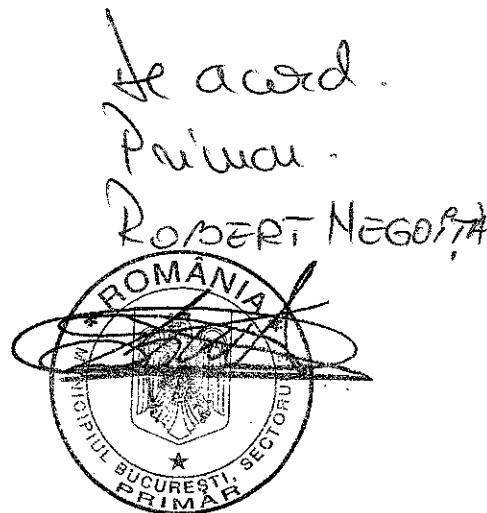 De acord.
Primar.
ROBERT NEGOIȚĂ
* ROMÂNIA *
MUNICIPIUL BUCUREȘTI, SECTORU
PRIMAR